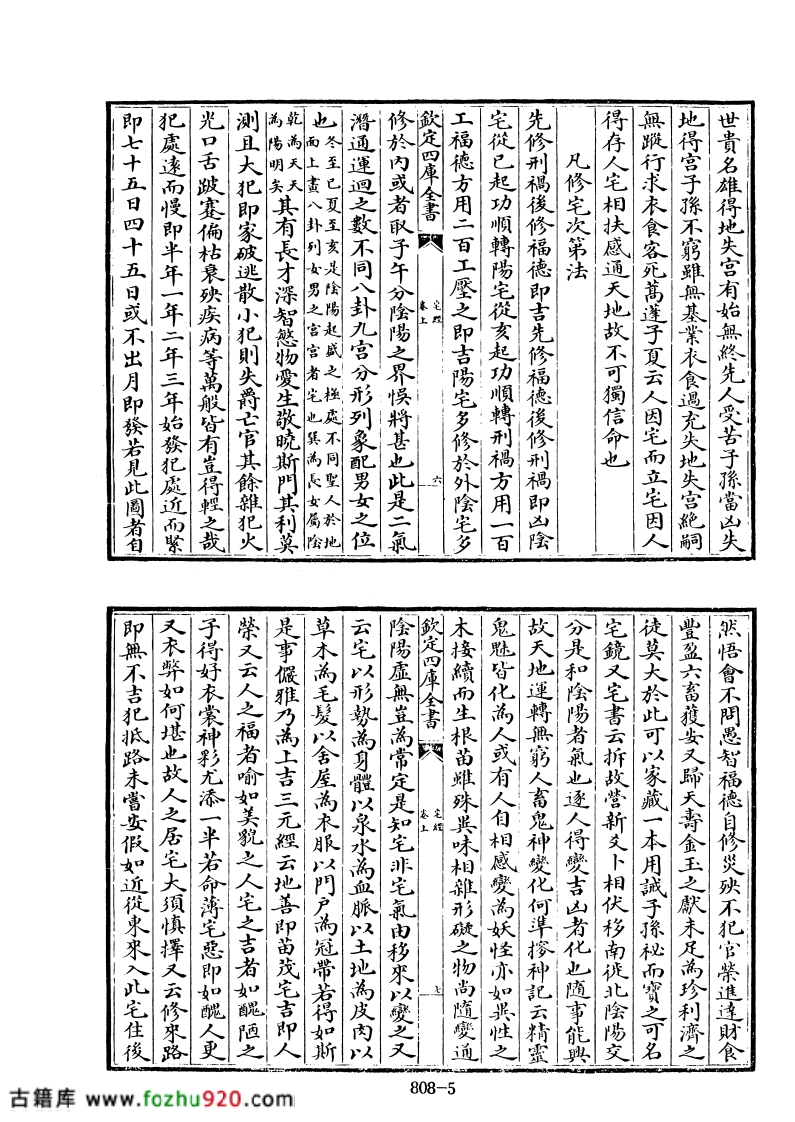 世貴名雄得地失宫有始無終先人受苦子孫當凶失
地得宫子孫不窮雖無基業衣食過充失地失宫絶嗣
無蹤行求衣食客死蒿蓬子夏云人因宅而立宅因人
得存人宅相扶感通天地故不可獨信命也
凡修宅次第法
先修刑禍後修福德即吉先修福德後修刑禍即凶陰
宅從巳起功順轉陽宅從亥起功順轉刑禍方用一百
工福德方用二百工壓之即吉陽宅多修於外陰宅多
欽定四庫全書
宅經
卷上
六
修於內或者取子午分陰陽之界悮將甚也此是二氣
潛通運迴之數不同八卦九宫分形列象配男女之位
也冬至巳夏至亥是陰陽起盛之極處不同聖人於地
而上畫八卦列女男之宫宫者宅也巽為長女屬陰
乾為天天
為陽明矣其有長才深智慜物愛生敬曉斯門其利莫
測且大犯即家破逃散小犯則失爵亡官其餘雜犯火
光口舌跛蹇偏枯衰殃疾病等萬般皆有豈得輕之哉
犯處逺而慢即半年一年二年三年始發犯處近而緊
即七十五日四十五日或不出月即發若見此圖者自
然悟會不問愚智福德自修災殃不犯官榮進達財食
豐盈六畜獲安又歸天壽金玉之獻未足為珍利濟之
徒莫大於此可以家藏一本用誡子孫祕而寶之可名
宅鏡又宅書云拆故營新爻卜相伏移南徙北陰陽交
分是和陰陽者氣也逐人得變吉凶者化也隨事能興
故天地運轉無窮人畜鬼神變化何準搜神記云精靈
鬼魅皆化為人或有人自相感變為妖怪亦如異性之
木接續而生根苗雖殊異味相雜形礙之物尚隨變通
欽定四庫全書
宅經
卷上
七
陰陽虛無豈為常定是知宅非宅氣由移來以變之又
云宅以形勢為身體以泉水為血脈以土地為皮肉以
草木為毛髮以舍屋為衣服以門户為冠帶若得如斯
是事儼雅乃為上吉三元經云地善即苗茂宅吉即人
榮又云人之福者喻如美貌之人宅之吉者如醜陋之
子得好衣裳神彩尤添一半若命薄宅惡即如醜人更
又衣弊如何堪也故人之居宅大須慎擇又云修來路
即無不吉犯抵路未嘗安假如近從東來入此宅住後
808-5
古籍库 www.fozhu920.com